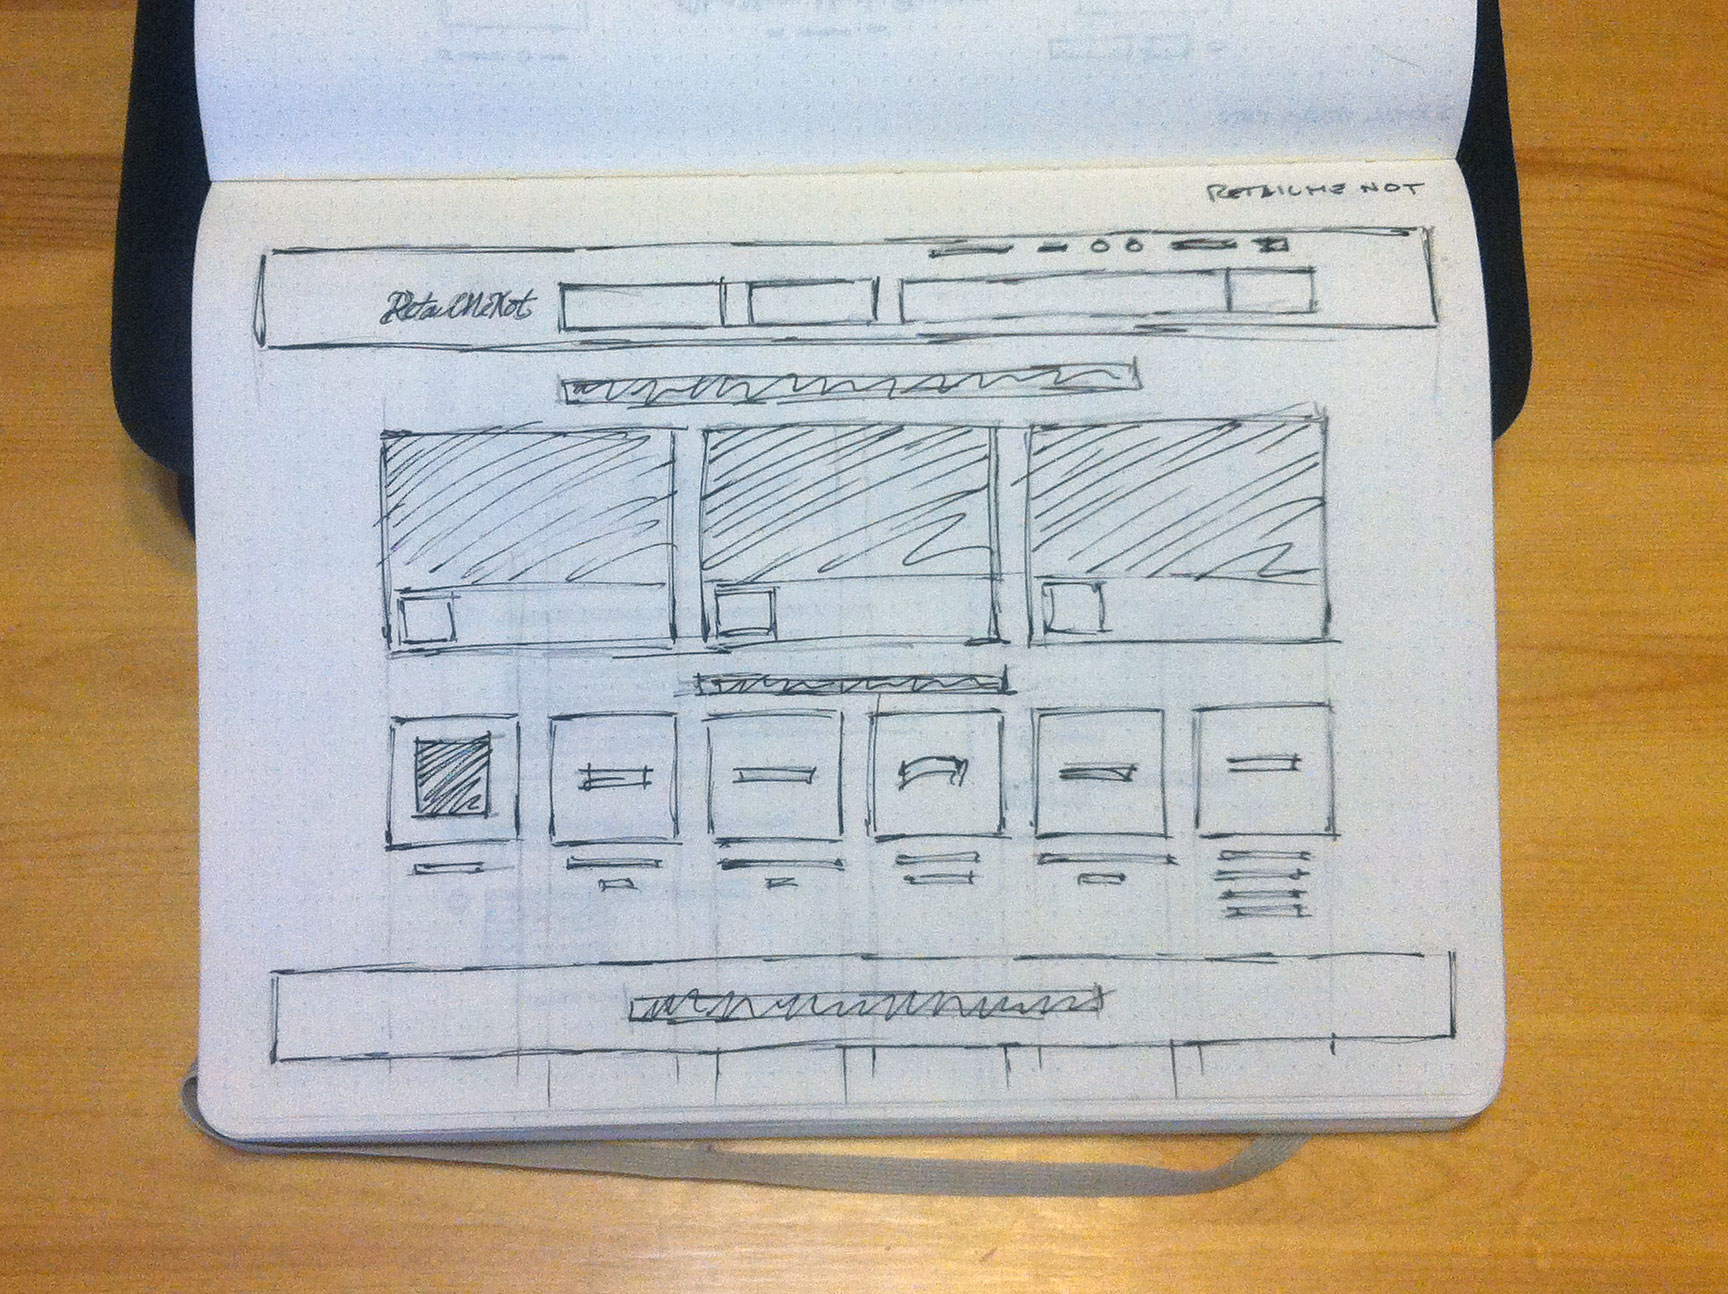 RETAILME NOT
RetailMeNot